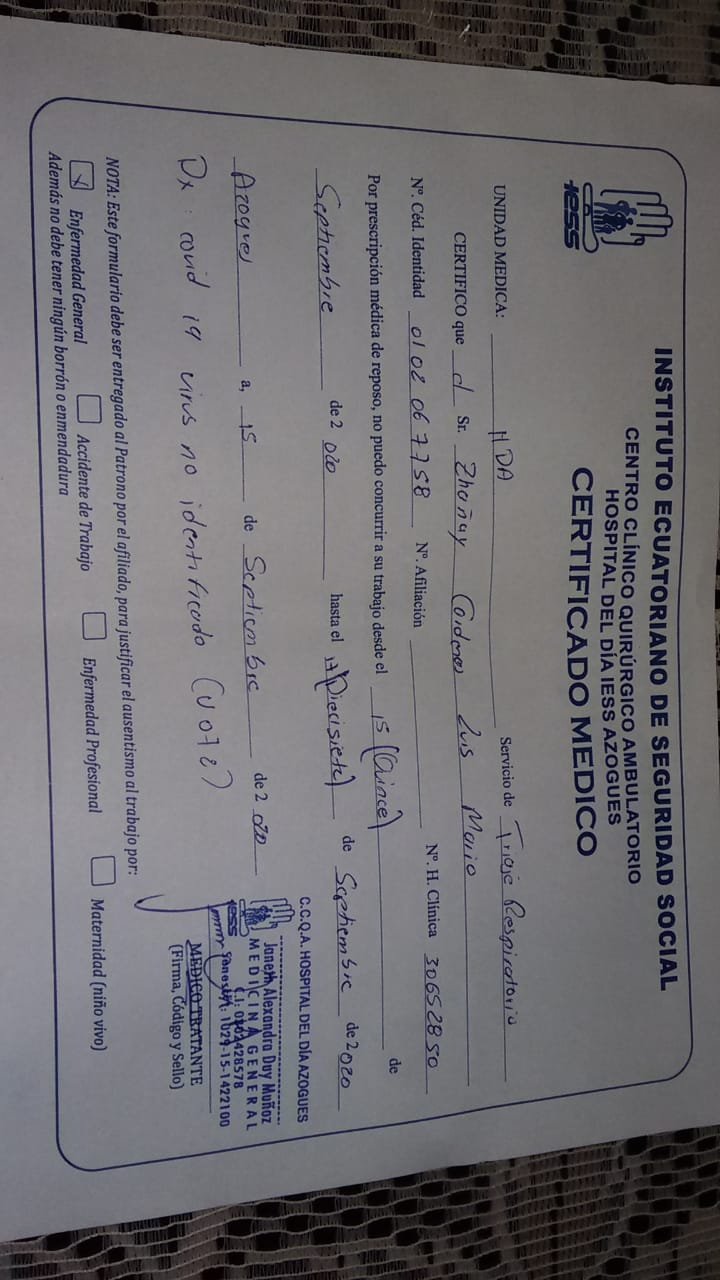 INSTITUTO ECUATORIANO DE SEGURIDAD SOCIAL
CENTRO CLÍNICO QUIRÚRGICO AMBULATORIO
HOSPITAL DEL DÍA IESS AZOGUES
CERTIFICADO MEDICO
iess
UNIDAD MEDICA: HDA Servicio de Triaje Respiratorio
CERTIFICO que el Sr. Zhañay Luis Mario
Nº. Céd. Identidad 0102067758 Nº. Afiliación Nº. H. Clínica 30652850
Por prescripción médica de reposo, no puedo concurrir a su trabajo desde el 15 (Quince) de
Septiembre de 2 020 hasta el 17 (Diecisiete) de Septiembre de 2020
Azogues a, 15 de Septiembre de 2 020
Dx: covid 19 virus no identificado (U072)
C.C.Q.A. HOSPITAL DEL DÍA AZOGUES
Janeth Alexandra Duy Muñoz
MEDICINA GENERAL
iess
1029-15-1422100
MEDICO TRATANTE
(Firma, Código y Sello)
NOTA: Este formulario debe ser entregado al Patrono por el afiliado, para justificar el ausentismo al trabajo por:
x Enfermedad General Accidente de Trabajo Enfermedad Profesional Maternidad (niño vivo)
Además no debe tener ningún borrón o enmendadura